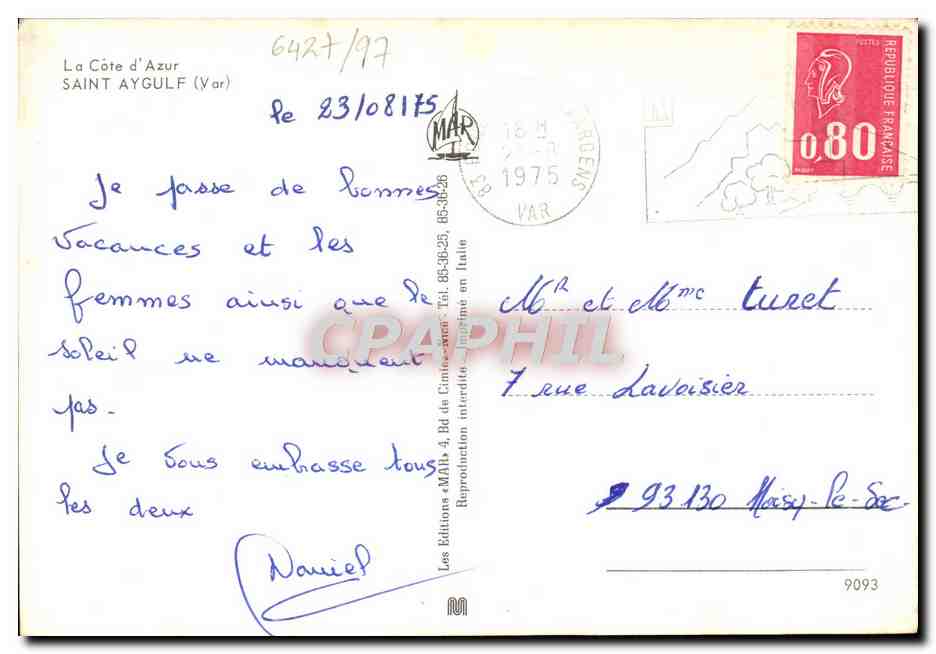 6427/97
La Côte d'Azur
SAINT AYGULF (Var)
le 23/08/75
Je passe de bonnes
vacances et les
femmes ainsi que le
soleil ne manquent
pas.
Je vous embrasse tous
les deux
Daniel
MAR
Les Editions «MAR» 4, Bd de Cimiez - Nice - Tél. 85-36-25, 85-36-26
Reproduction interdite - Imprimé en Italie
18 H
1975
VAR
83
ARGENS
POSTES
REPUBLIQUE FRANÇAISE
0,80
Mr et Mme Turet
7 rue Lavoisier
93130 Noisy-le-Sec
9093
CPAPHIL